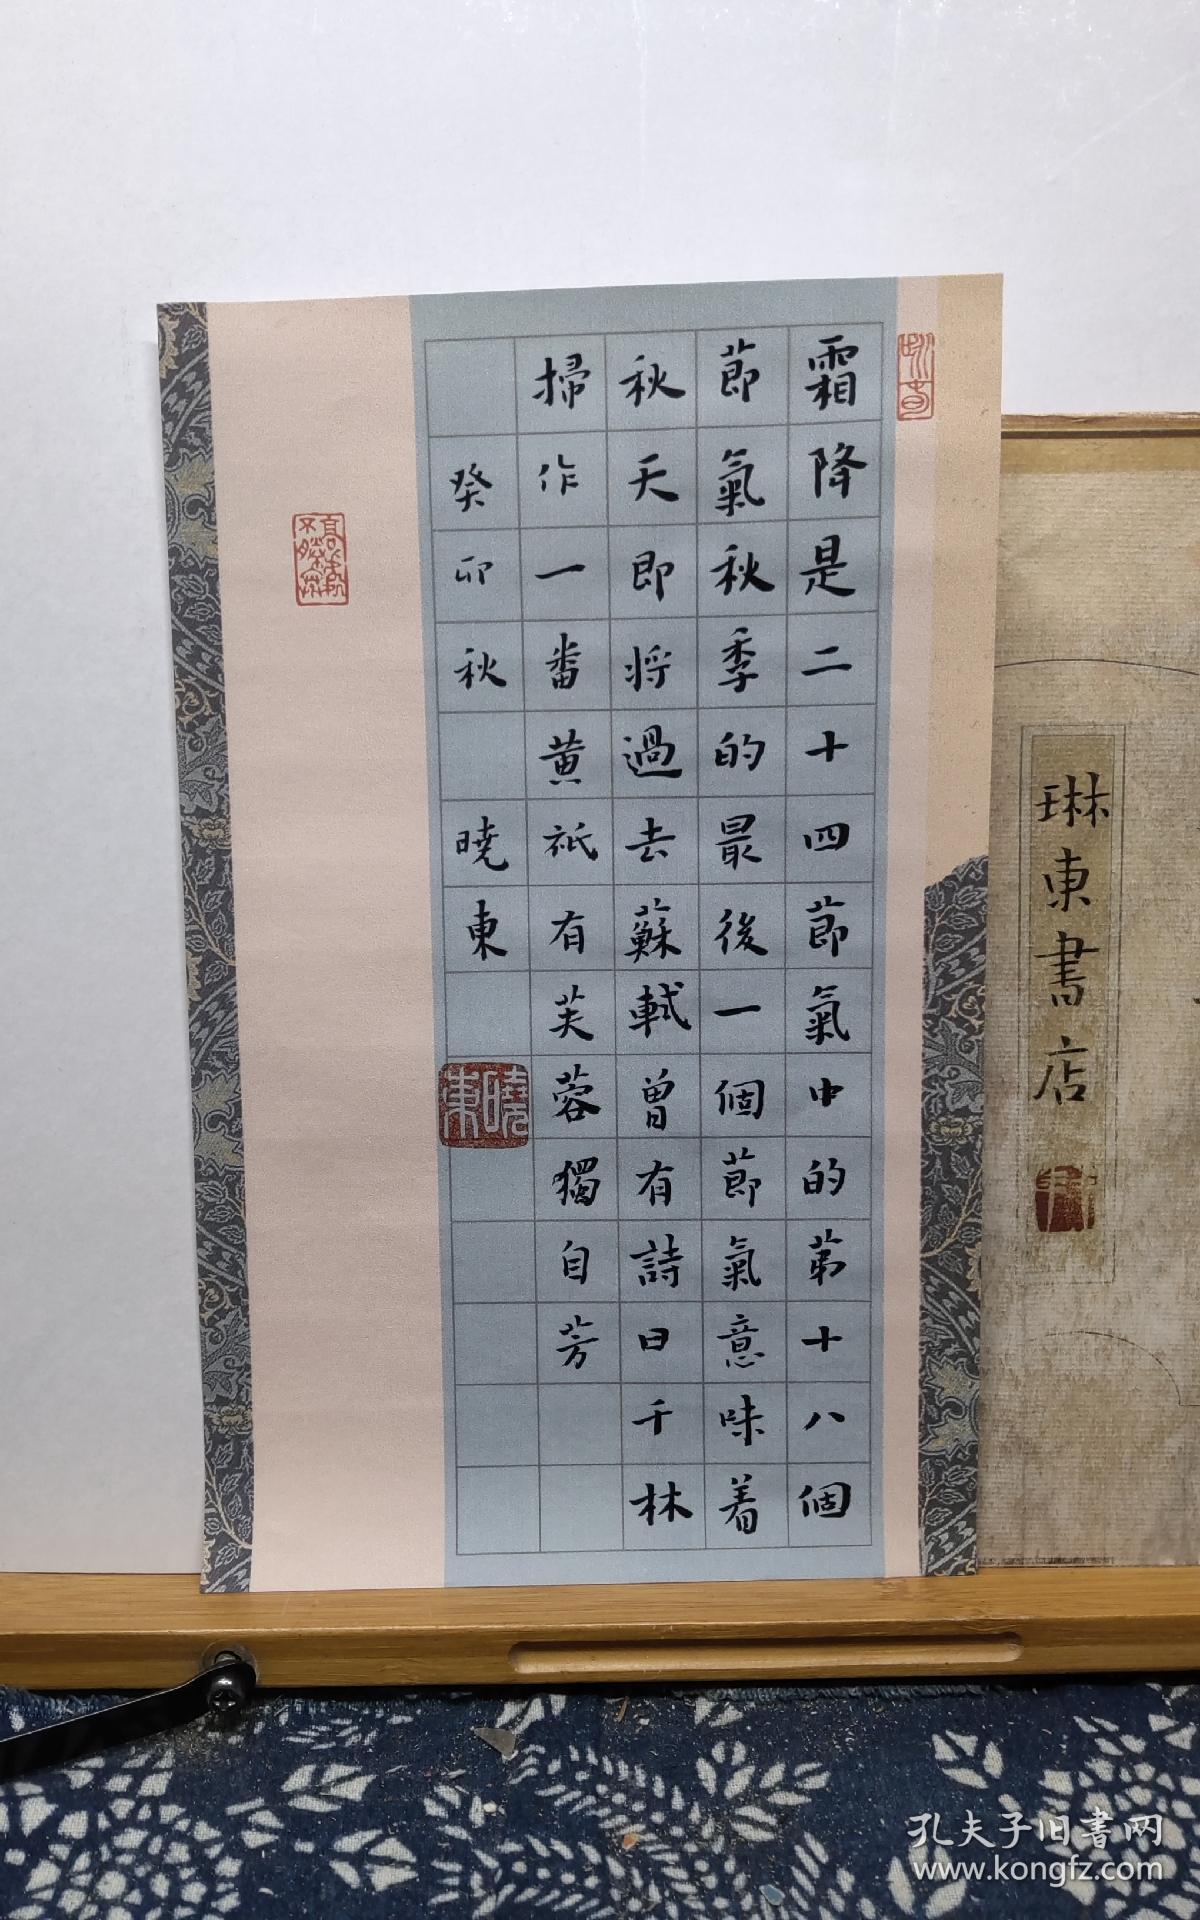 霜降是二十四節氣中的第十八個
節氣秋季的最後一個節氣意味着
秋天即將過去蘇軾曽有詩曰千林
掃作一番黄祇有芙蓉獨自芳
癸卯秋 曉東
曉東
琳東書店
孔夫子旧書网
www.kongfz.com